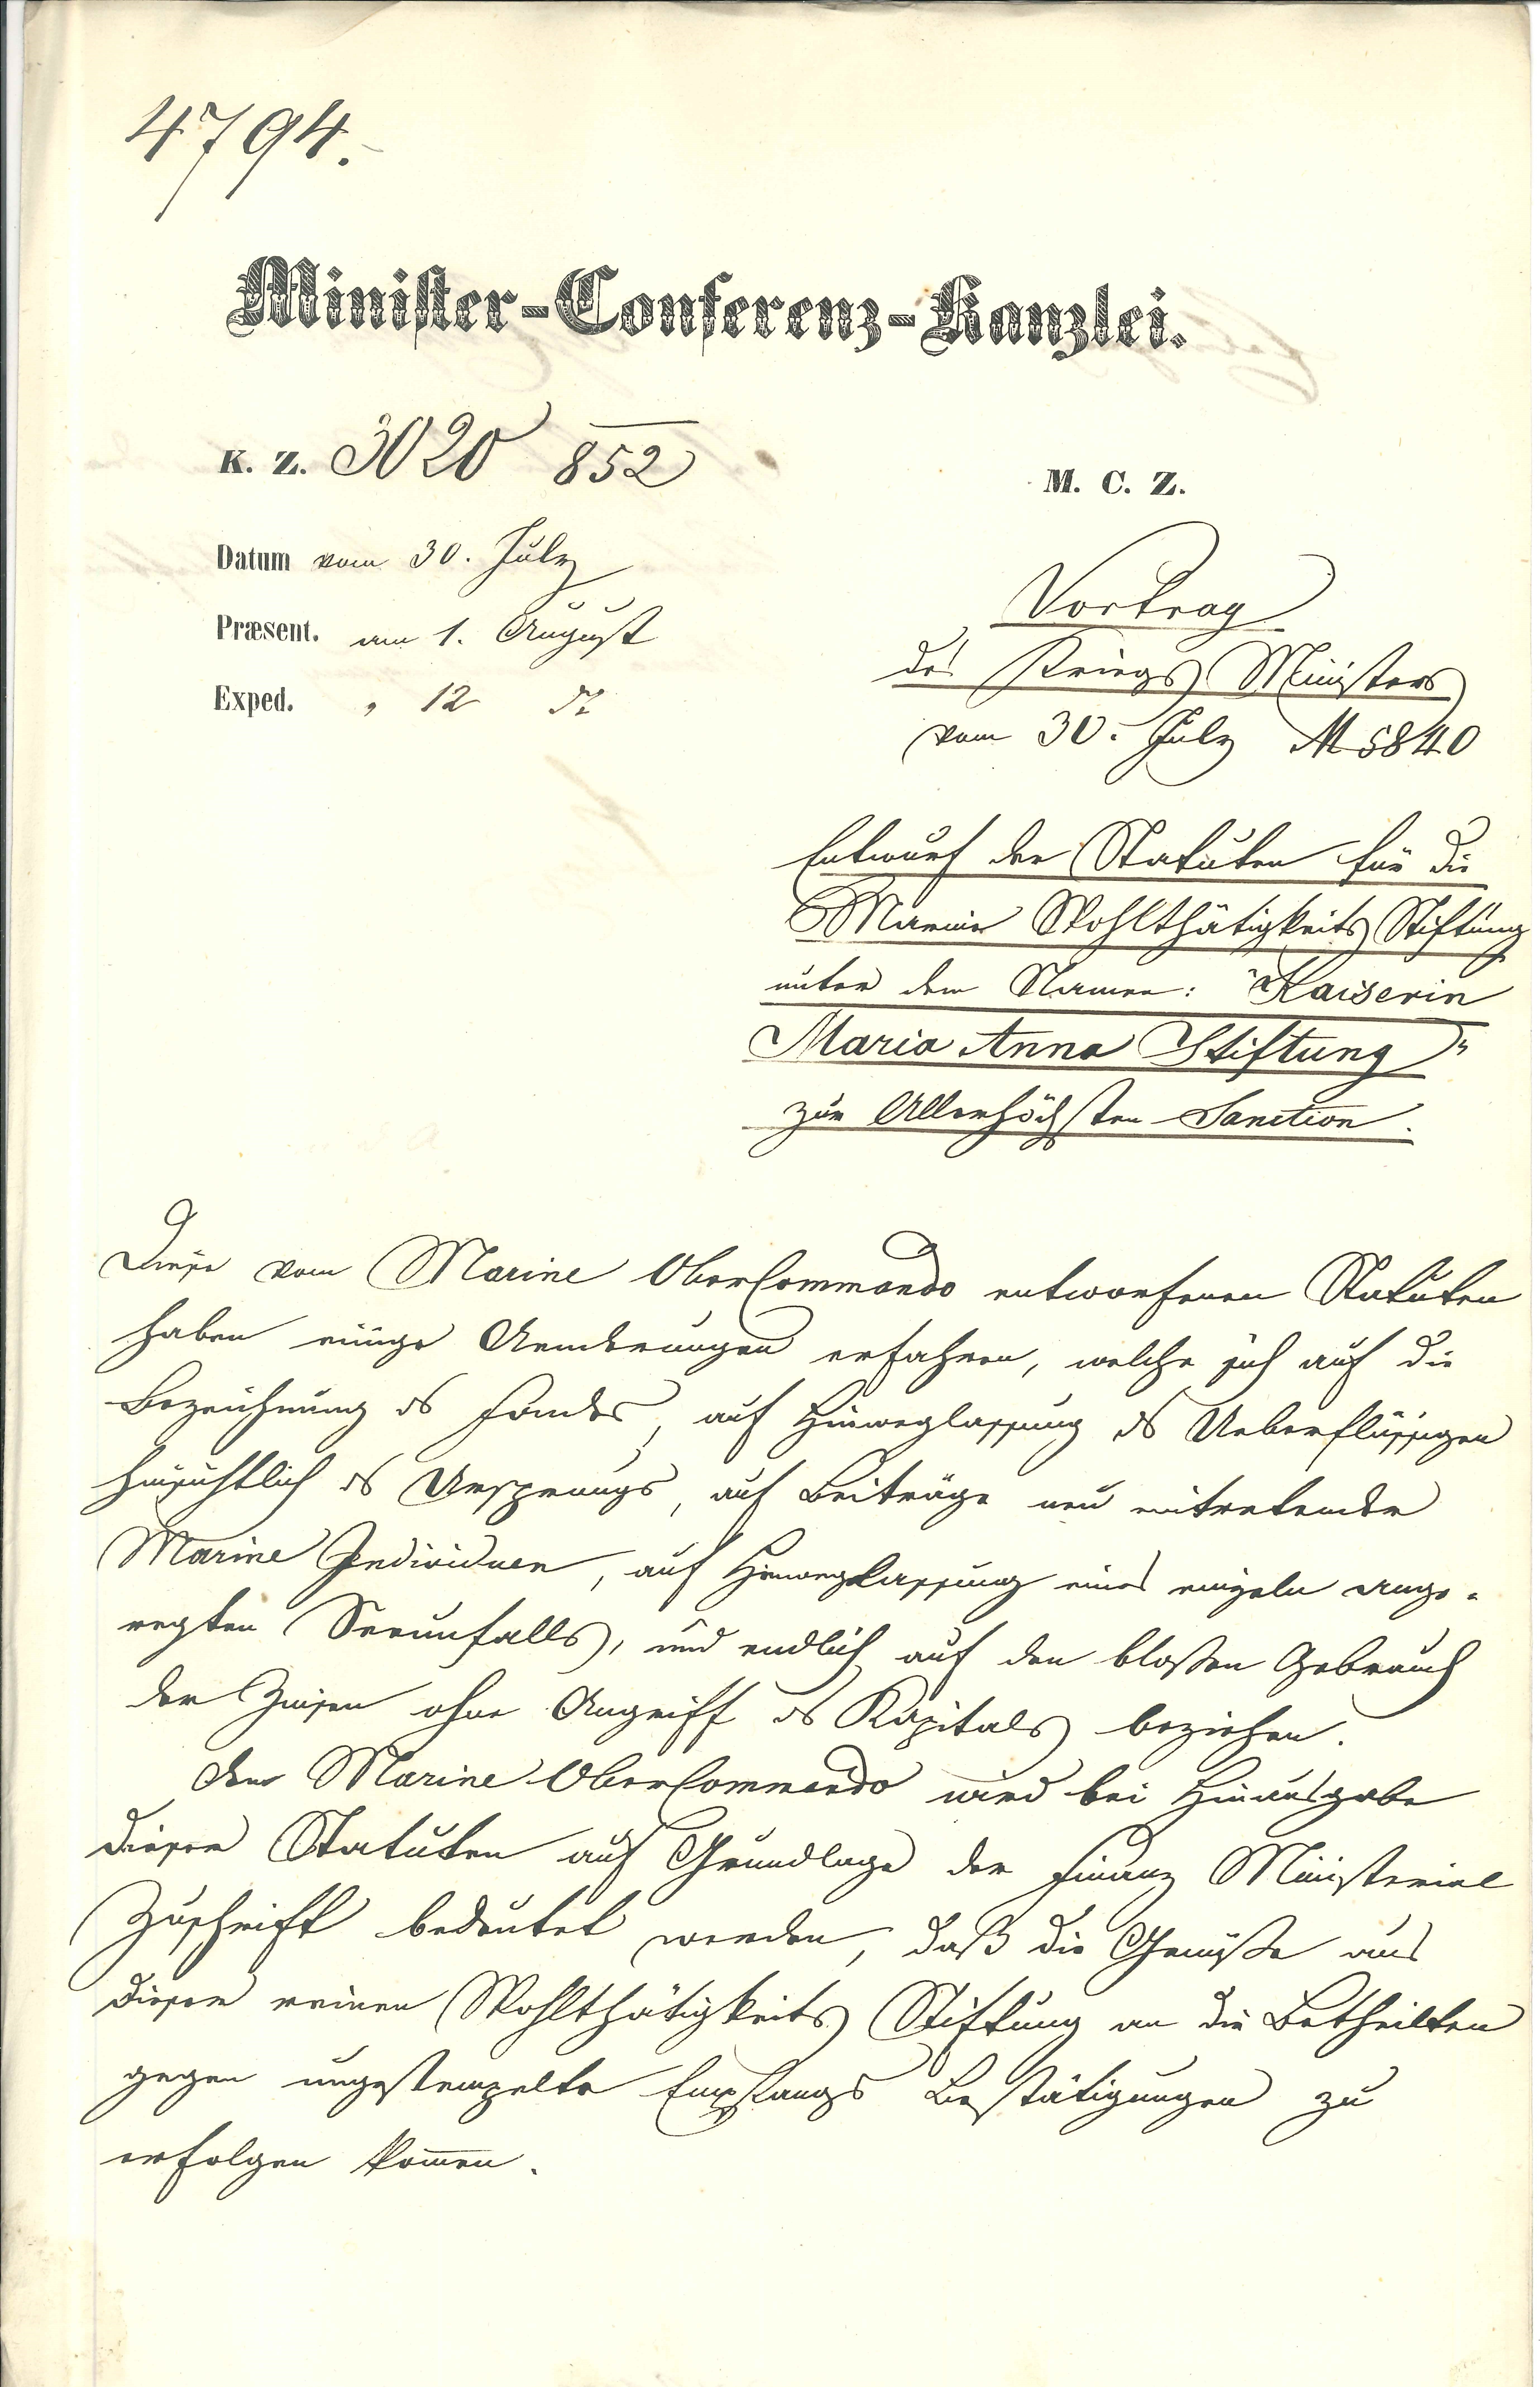 4794.
Minister-Conferenz-Kanzlei.
K. Z. 3020 852
M. C. Z.
Datum vom 30. July
Præsent. am 1. August
Exped. " 12
Vortrag
des Kriegs Ministers
vom 30. July M 5840
Entwurf der Statuten für die
Marine Wohlthätigkeits Stiftung
unter dem Namen: "Kaiserin
Maria Anna Stiftung"
zur Allerhöchsten Sanction.
Diese vom Marine OberCommando entworfenen Statuten
haben einige Aenderungen erfahren, welche sich auf die
Bezeichnung des Fondes, auf Hinweglassung des Ueberflüssigen
hinsichtlich des Ursprungs, auf Beiträge neu eintretender
Marine Individuen, auf Hinweglassung eines einzeln ange-
regten Seeunfalls, und endlich auf den bloßen Gebrauch
der Zinsen ohne Angriff des Kapitals beziehen.
Dem Marine OberCommando wird bei Hinausgabe
dieser Statuten auf Grundlage der Finanz Ministerial
Zuschrift bedeutet werden, daß die Genüße aus
dieser reinen Wohlthätigkeits Stiftung an die Betheilten
gegen ungestempelte Empfangs Bestätigungen zu
erfolgen kom̅en.